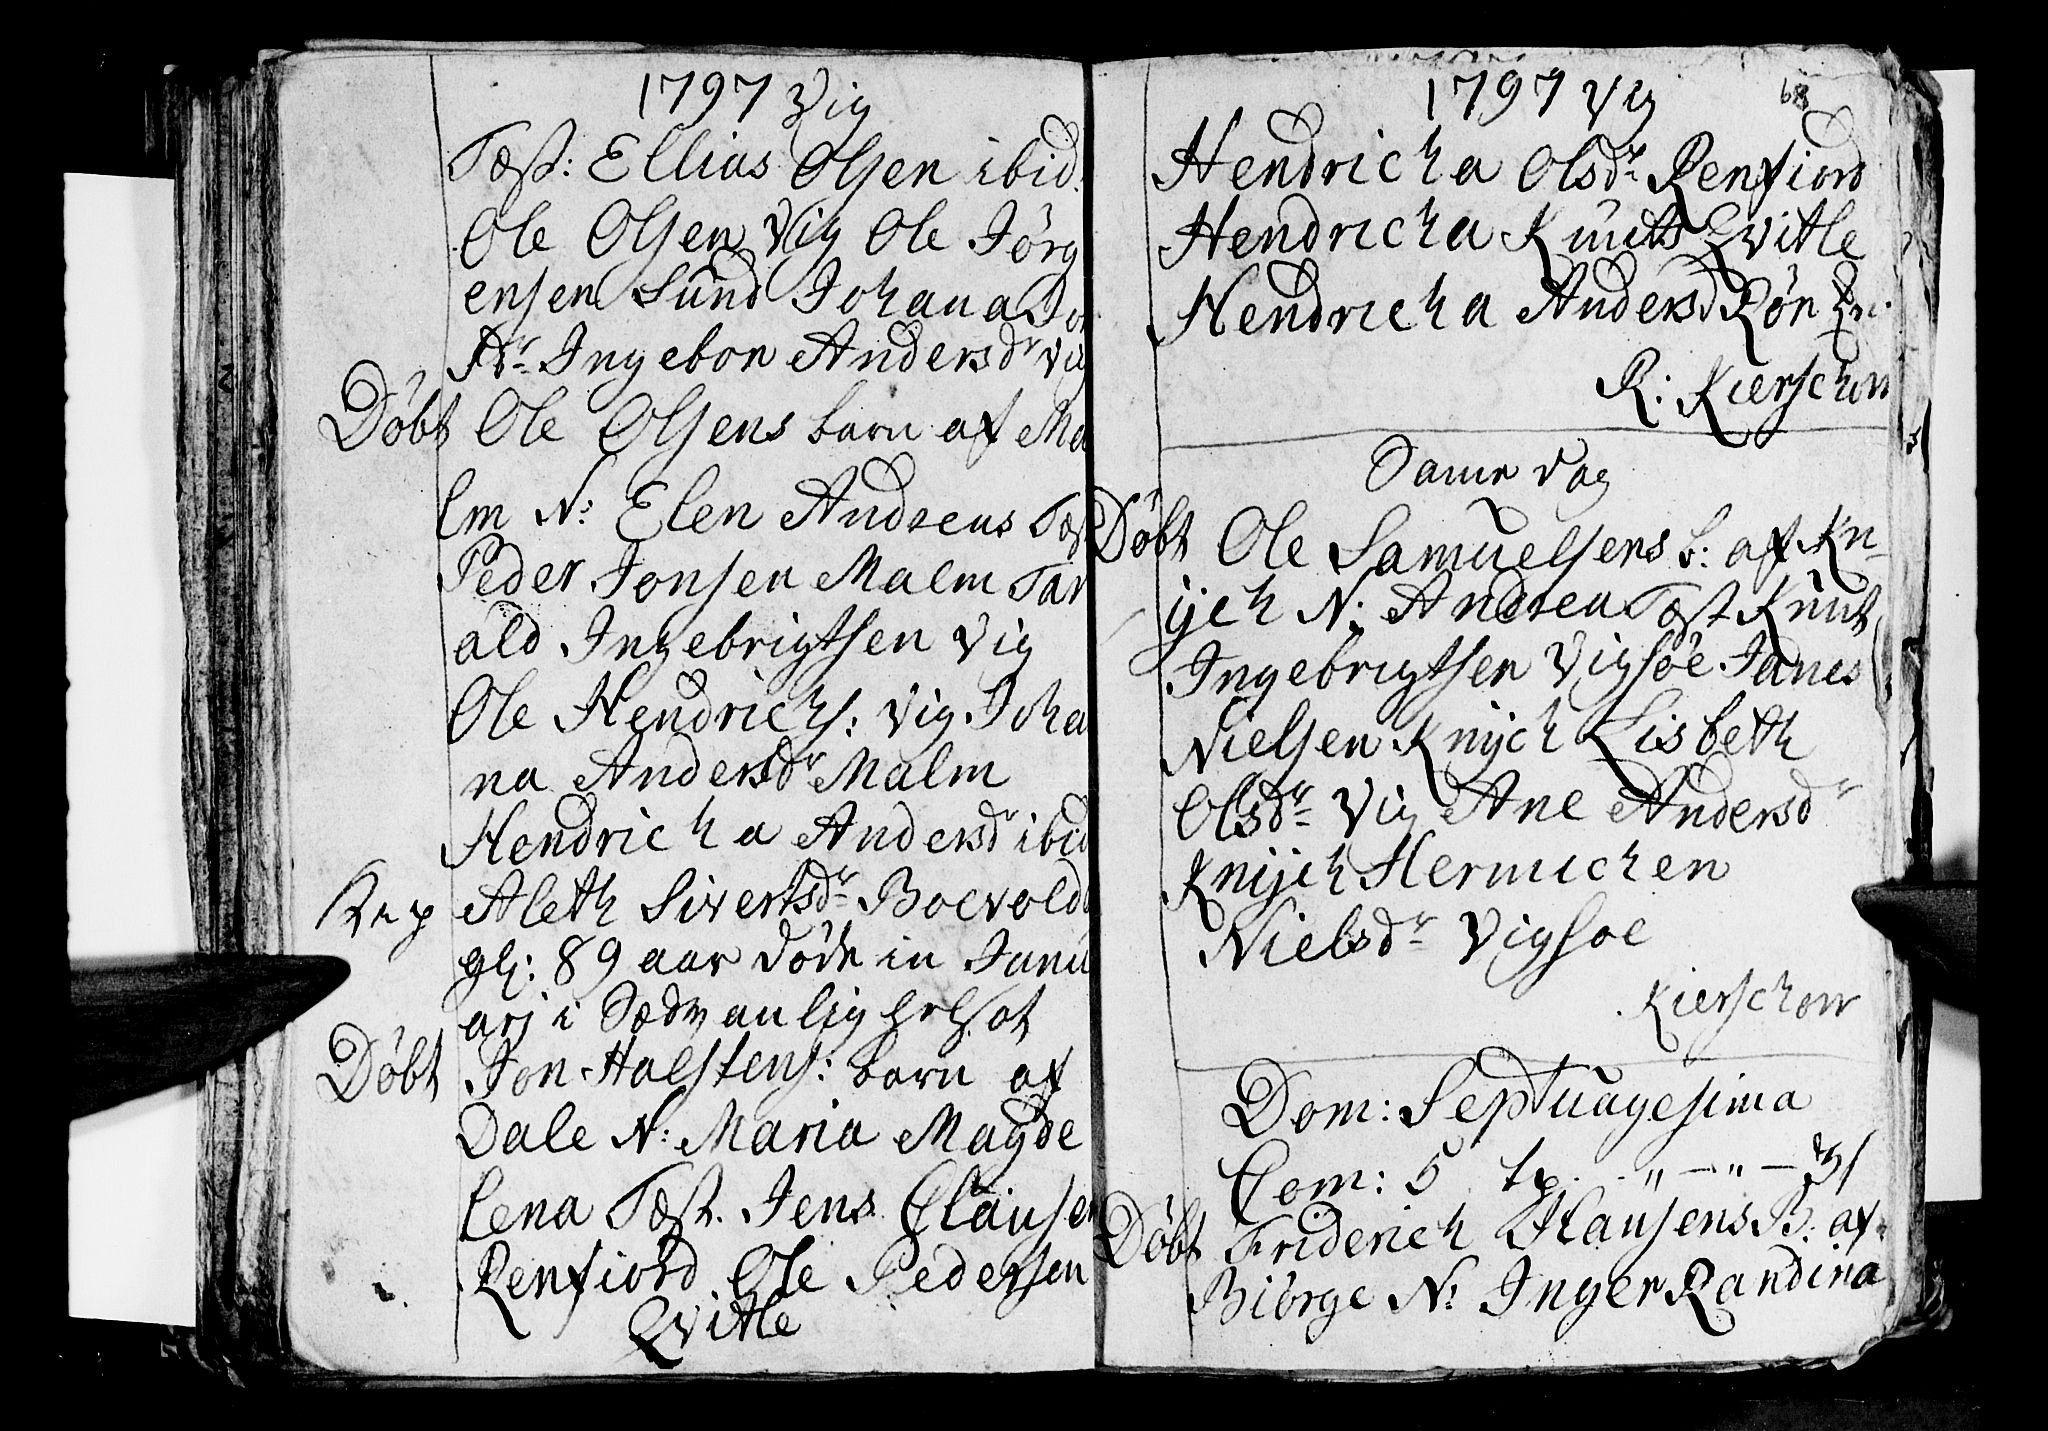 1797 Vig
Tæst: Ellias Olsen ibid.
Ole Olsen Vig Ole Jörg
ensen Sund Johana Jon
Dr Ingebor Andersdr Vig
Döbt Ole Olsens barn af Ma
lm N: Elen Andreas Tæst
Peder Jonsen Malm
ald Ingebrigtsen Vig
Ole Hendrichs: Vig Joha
na Andersdr Malm
Hendricha Andersdr ibid
Aleth Sivertsdr Boevold
gl: 89 aar döde in Janu
arj i Sædvanlig
Döbt Jon Halstens: barn af
Dale N: Maria Magde
lena Tæst. Jens Clausen
Renfiord Ole Pedersen
Qvitle
1797 Vig 68
Hendricha Olsdr Renfiord
Hendricha Knuts Qvitle
Hendricha Andersd Rön
R: Kierschow
Same Dag
Döbt Ole Samuelsens b: af Kn-
ijch N: Andrea Tæst Knut
Ingebrigtsen Vigsöe Janes
Nielsen Knijch Lisbeth
Olsdr Vig Ane Andersdr
Knijch Hermichen
Nielsdr Vigsoe
Kierschow
Dom: Septuagesima
Com: 5
Döbt Friderich Hansens B: af
Biörge N: Inger Randina